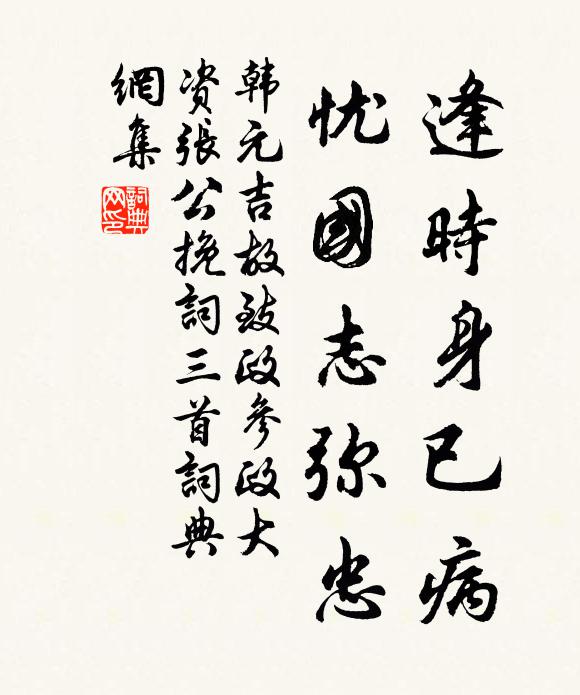 逢時身已病
忧國志弥忠
韩元吉故致政參政大
资張公挽詞三首詞典
網集
詞典
网印